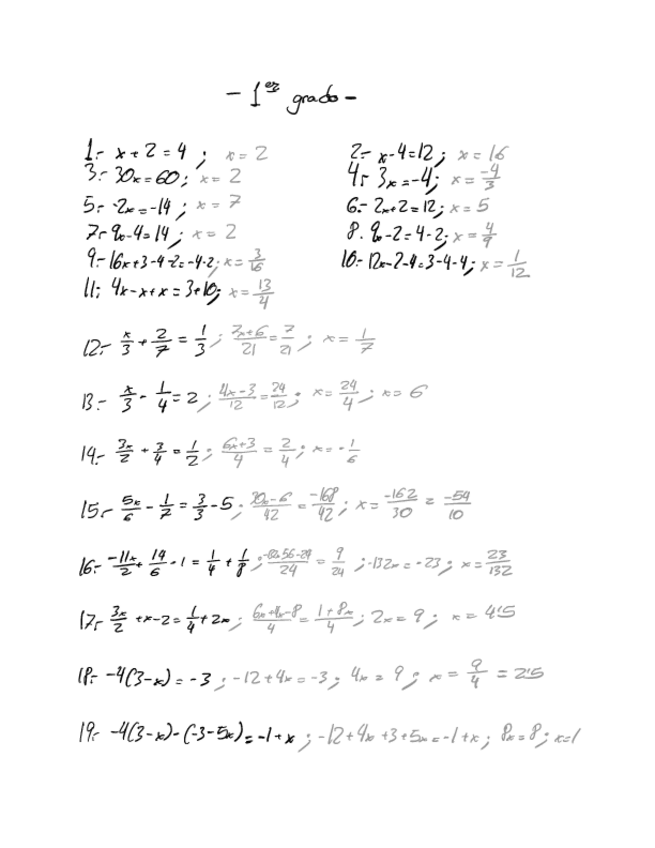 - 1er grado -
1.- x + 2 = 4 ; x = 2
2.- x - 4 = 12 ; x = 16
3.- 30x = 60 ; x = 2
4.- 3x = -4 ; x = -4/3
5.- -2x = -14 ; x = 7
6.- 2x + 2 = 12 ; x = 5
7.- 9x - 4 = 14 ; x = 2
8.- 9x - 2 = 4 - 2 ; x = 4/9
9.- 16x + 3 - 4 - 2 = -4 - 2 ; x = 3/16
10.- 12x - 2 - 4 = 3 - 4 - 4 ; x = 1/12
11.- 4x - x + x = 3 + 10 ; x = 13/4
12.- x/3 + 2/7 = 1/3 ; 7x+6/21 = 7/21 ; x = 1/7
13.- x/3 - 1/4 = 2 ; 4x-3/12 = 24/12 ; x = 24/4 ; x = 6
14.- 3x/2 + 3/4 = 1/2 ; 6x+3/4 = 2/4 ; x = -1/6
15.- 5x/6 - 1/7 = 3/3 - 5 ; -168/42 ; x = -162/30 = -54/10
16.- -11x/2 + 14/6 - 1 = 1/4 + 1/8 ; 9/24 ; -132x = -23 ; x = 23/132
17.- 3x/2 + x - 2 = 1/4 + 2x ; 6x+4x-8/4 = 1+8x/4 ; 2x = 9 ; x = 4'5
18.- -4(3-x) = -3 ; -12 + 4x = -3 ; 4x = 9 ; x = 9/4 = 2'5
19.- -4(3-x) - (-3-5x) = -1 + x ; -12 + 4x + 3 + 5x = -1 + x ; 8x = 8 ; x = 1